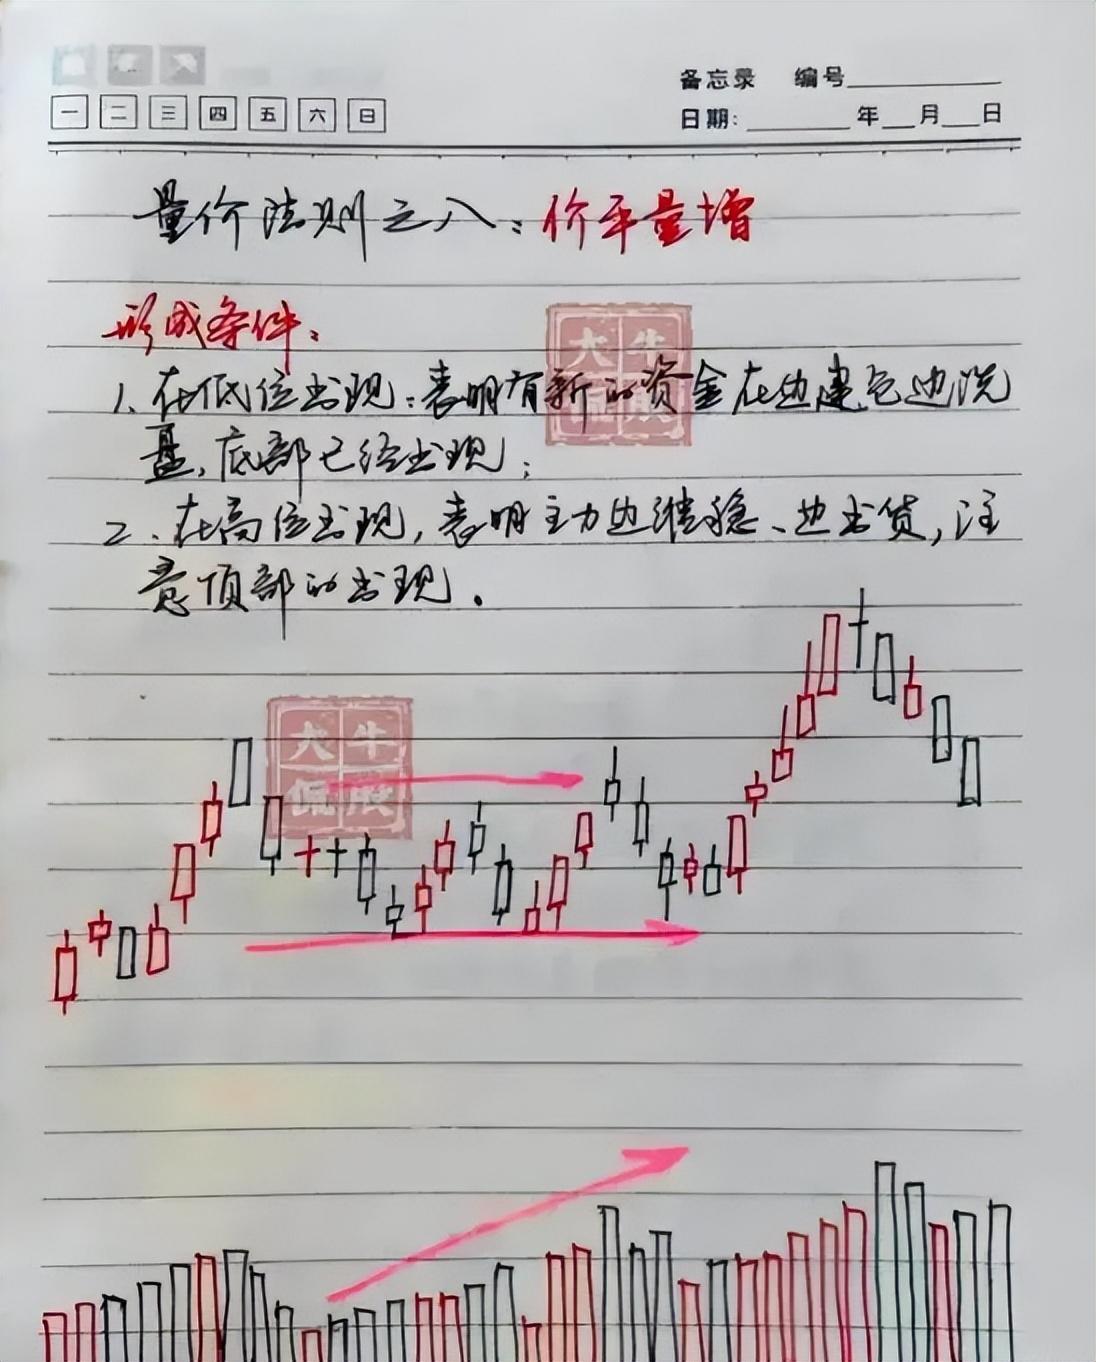 备忘录 编号
一 二 三 四 五 六 日
日期: 年 月 日
量价法则之八:价平量增
形成条件:
1、在低位出现:表明有新的资金在边建仓边洗
盘,底部已经出现;
2、在高位出现,表明主力边维稳、边出货,注
意顶部的出现.
大牛
侃股
大牛
侃股